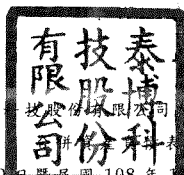 泰博科
技股份
有限公司
技股份有限公司
日暨民國 108 年